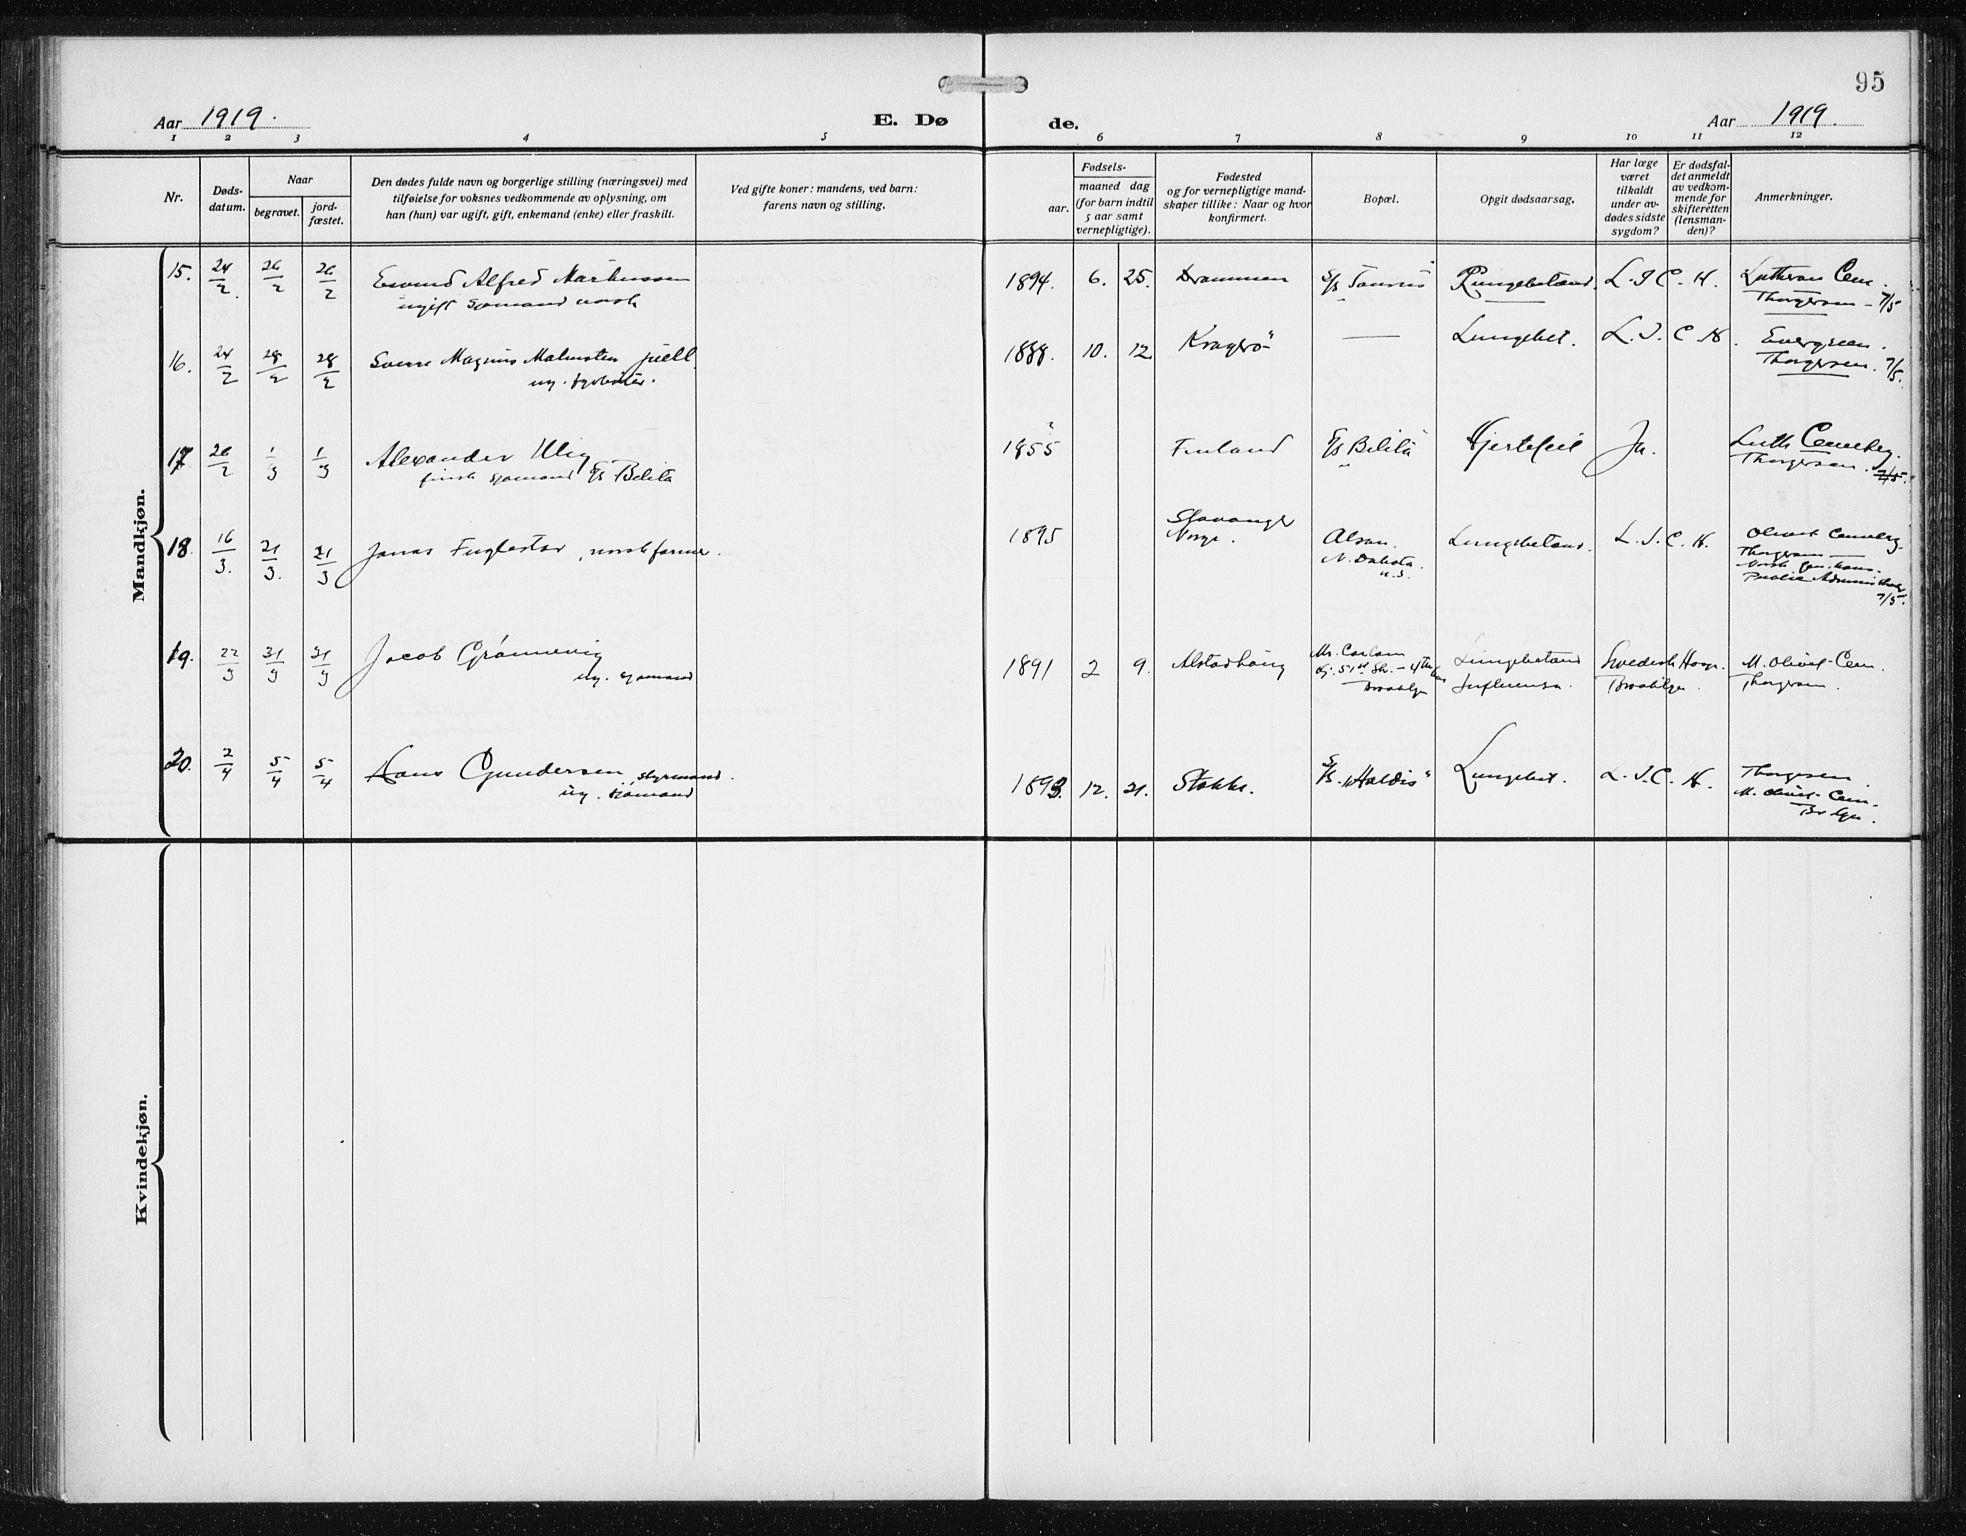 95
Aar 1919.
E. Dø
de.
Aar 1919.
1 2 3 4 5 6 7 8 9 10 11 12
Nr.
Døds-
datum.
Naar
begravet.
jord-
fæstet.
Den dødes fulde navn og borgerlige stilling (næringsvei) med
tilføielse for voksnes vedkommende av oplysning, om
han (hun) var ugift, gift, enkemand (enke) eller fraskilt.
Ved gifte koner: mandens, ved barn:
farens navn og stilling.
Fødsels-
aar.
maaned dag
(for barn indtil
5 aar samt
vernepligtige).
Fødested
og for vernepligtige mand-
skaper tillike: Naar og hvor
konfirmert.
Bopæl.
Opgit dødsaarsag.
Har læge
været
tilkaldt
under av-
dødes sidste
sygdom?
Er dødsfal-
det anmeldt
av vedkom-
mende for
skifteretten
(lensman-
den)?
Anmerkninger.
Mandkjøn.
15. 24/2. 26/2 26/2 Eivind Alfred Markussen 1894. 6. 25. Drammen S/S Taurus Lungebetænd. L.I.C.H. Lutheran Cem.
ugift sjømand norsk
Thorgersen - 7/5
16. 24/2 28/2 28/2 Sverre Magnus Malmsten Juell. 1888. 10. 12. Kragerö — Lungebet. L.I.C.H. Evergreen.
ug. fyrbøter.
Thorgersen. 7/5.
17 26/2 1/3 1/3 Alexander Ulig 1855 ? Finland S/S Belita Hjertefeil Ja. Luth Cemetery.
finsk sjømand S/S Belita
Thorgersen. 7/5.
18. 16/3. 21/3. 21/3 Jonas Fuglestad, norsk farmer. 1895 Stavanger
Norge.
N. Dakota.
U.S.
Lungebetænd. L.I.C.H. Olivet Cemetery.
Thorgersen —
Norsk gen. kons.
Public Administrator
7/5.
19. 22/3 31/3 31/3 Jacob Grönnevig 1891 2 9. Alstadhaug Mr. Carlson Lungebetænd Swedish Hosp. M. Olivet Cem.
ug. sjømand
51st St. - 4th Av
Brooklyn
Influensa.
Brooklyn.
Thorgersen.
20. 2/4 5/4 5/4 Hans Gundersen, styrmand. 1893. 12. 21. Stokke. S/S. "Haldis" Lungebet. L.I.C.H. Thorgersen
ug. sjømand
M. Olivet Cem.
Kvindekjøn.